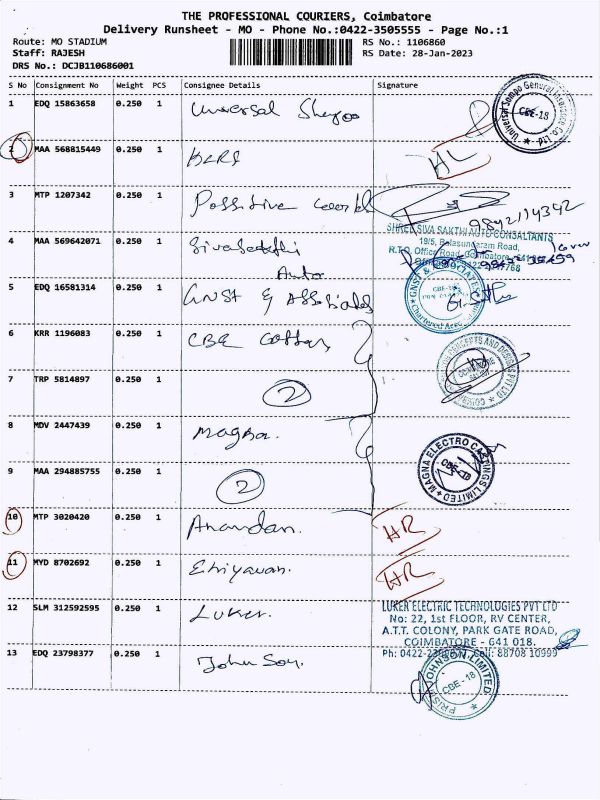 THE PROFESSIONAL COURIERS, Coimbatore
Delivery Runsheet - MO - Phone No.:0422-3505555 - Page No.:1
Route: MO STADIUM
Staff: RAJESH
DRS No.: DCJB110686001
RS No.: 1106860
RS Date: 28-Jan-2023
S No Consignment No Weight PCS Consignee Details Signature
1 EDQ 15863658 0.250 1 Universal
Universal Sompo General Insurance Co. Ltd CBE-18
2 MAA 568815449 0.250 1
3 MTP 1207342 0.250 1 Possitive
SHREE SIVA SAKTHI AUTO CONSULTANTS
19/5, Balasundaram Road,
R.T.O. Office Road, Coimbatore
4 MAA 569642071 0.250 1 SivaSakthi
Auto
5 EDQ 16581314 0.250 1 GNST & Associates
GNST & ASSOCIATES Chartered
6 KRR 1196083 0.250 1 CBE Cotton
CONCEPTS AND DESIGNS PVT LTD
7 TRP 5814897 0.250 1 2
8 MDV 2447439 0.250 1 Magna
MAGNA ELECTRO CASTINGS LIMITED CBE-18
9 MAA 294885755 0.250 1 2
10 MTP 3020420 0.250 1 Anandan. HR
11 MYD 8702692 0.250 1 HR
12 SLM 312592595 0.250 1 Luker.
LUKER ELECTRIC TECHNOLOGIES PVT LTD
No: 22, 1st FLOOR, RV CENTER,
A.T.T. COLONY, PARK GATE ROAD,
COIMBATORE - 641 018.
Ph: Cell: 88708 10999
13 EDQ 23798377 0.250 1 John Son.
JOHNSON LIMITED CBE-18